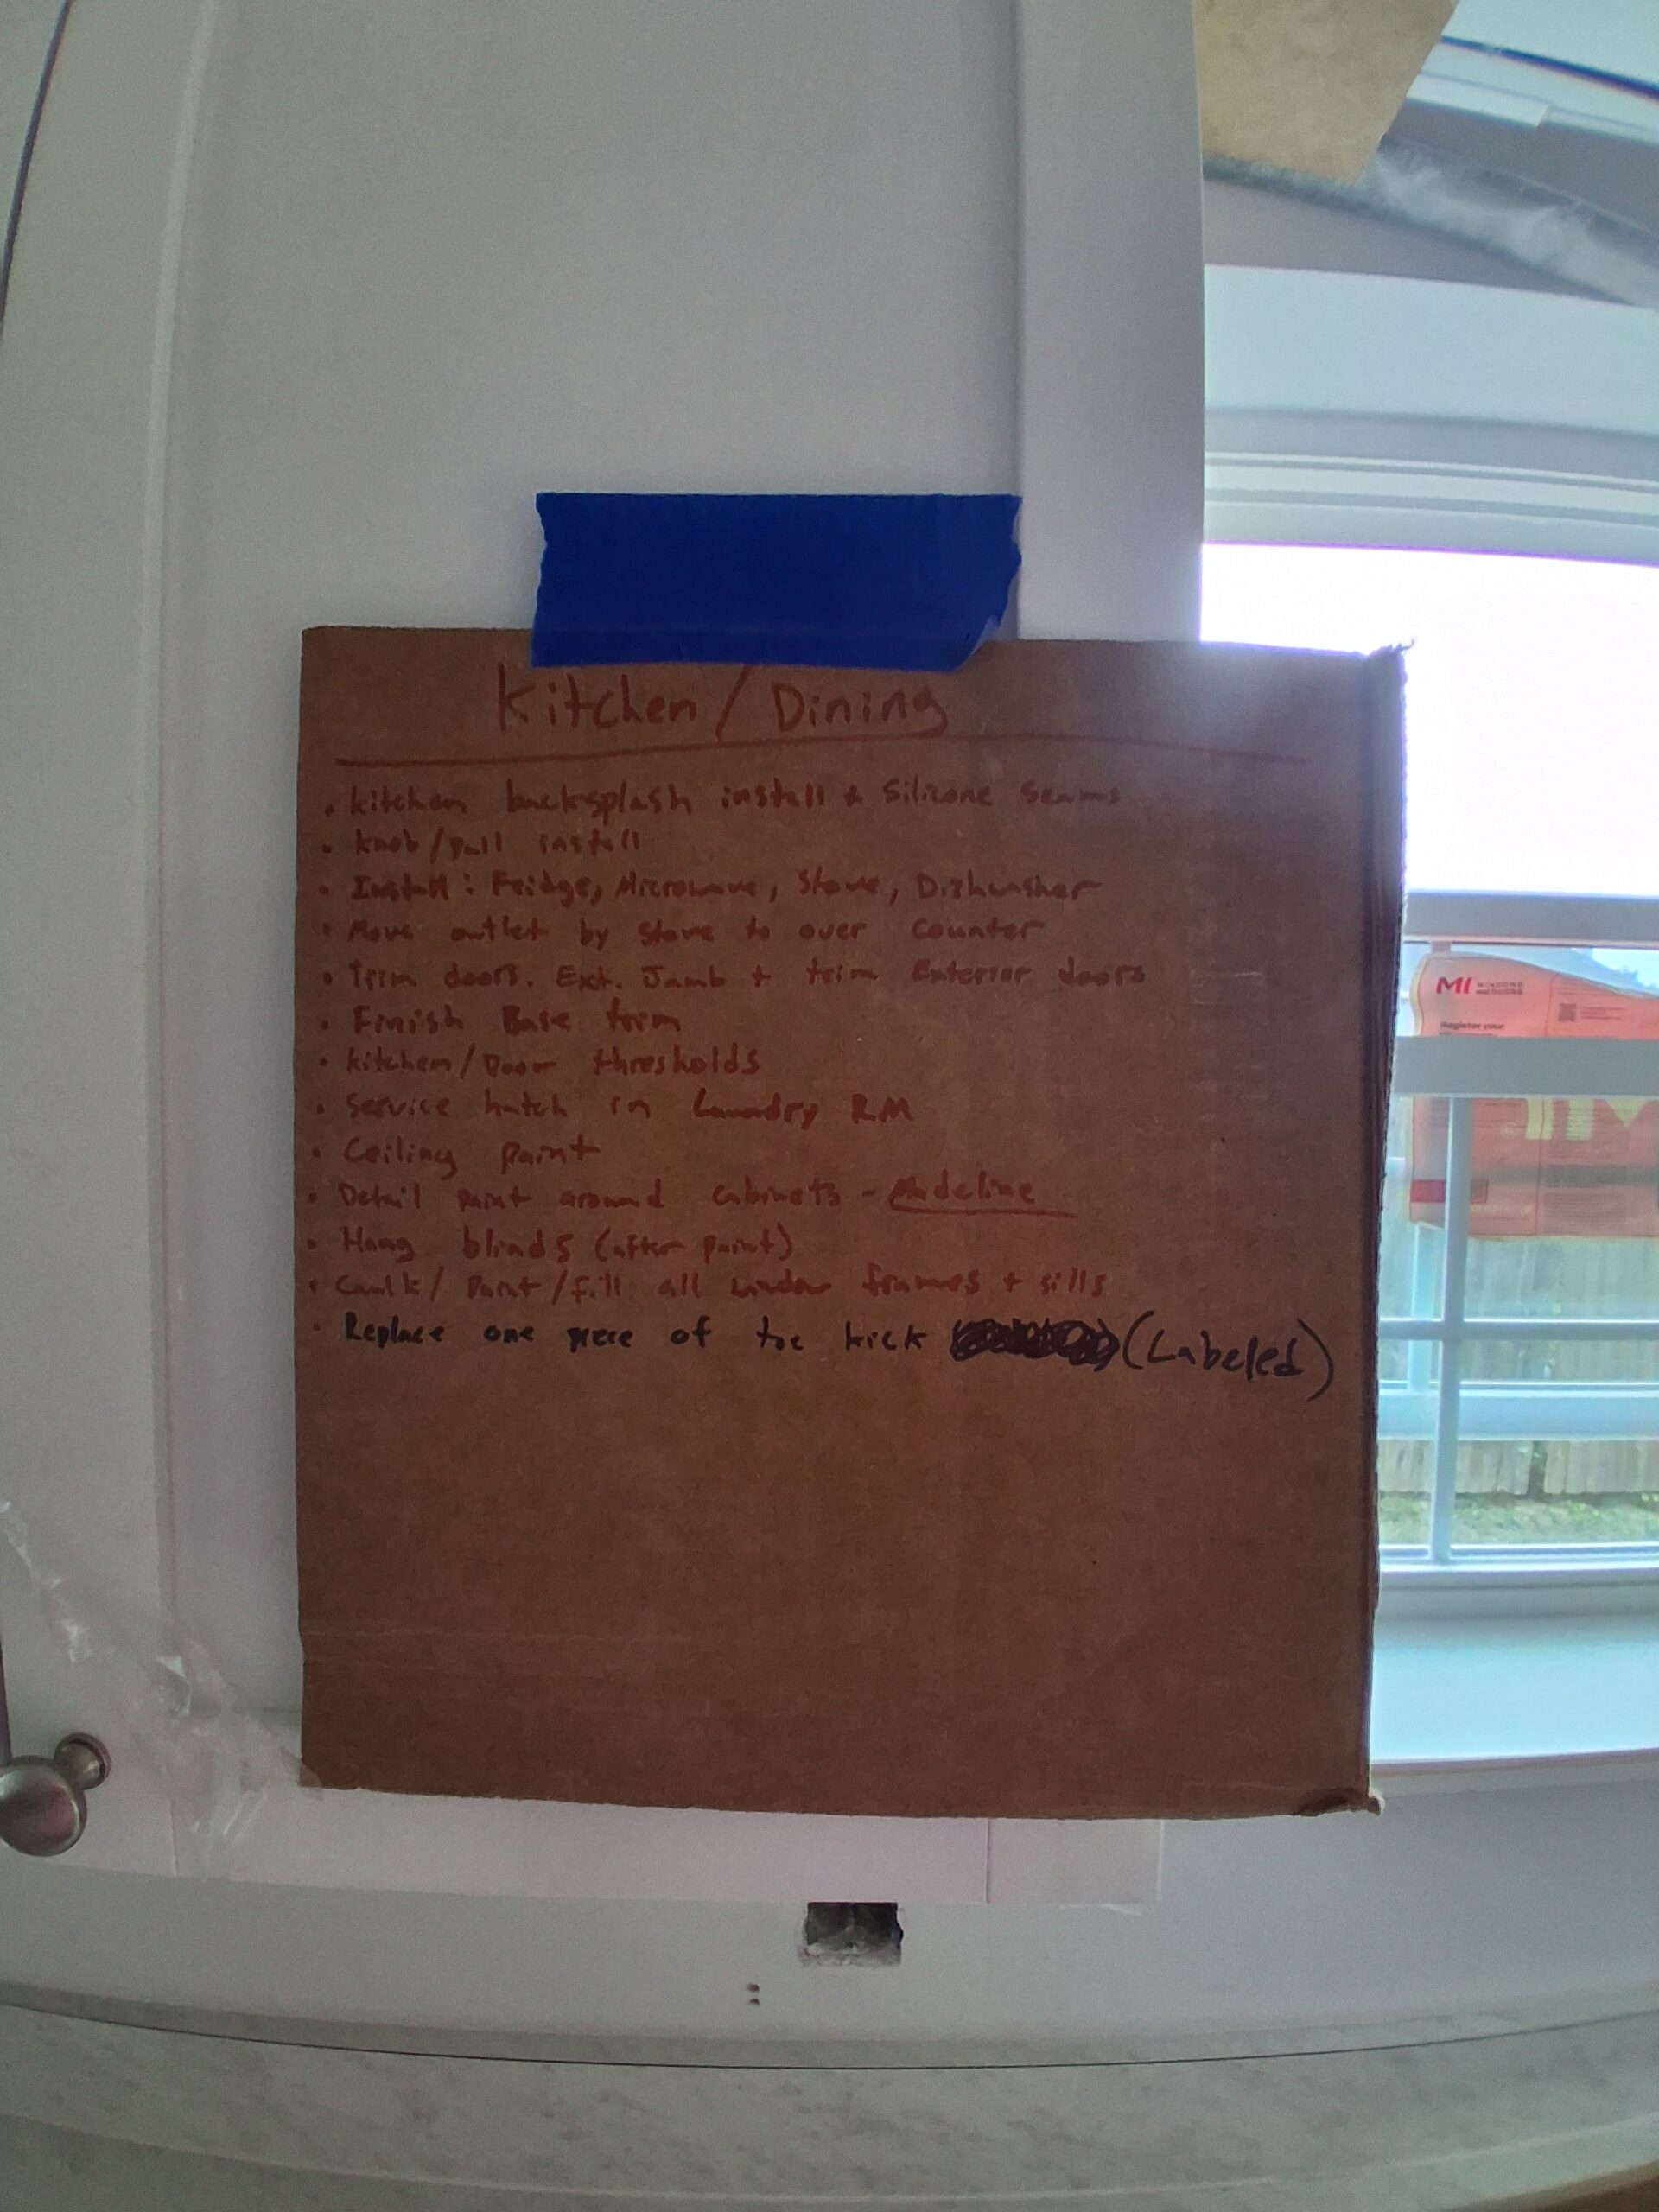 Kitchen / Dining
• Kitchen backsplash install + Silicone Seams
• Knob/pull install
• Install: Fridge, Microwave, Stove, Dishwasher
• Move outlet by stove to over counter
• Trim doors. Ext. Jamb + trim Exterior doors
• Finish Base trim
• Kitchen/Door thresholds
• Service hatch in Laundry RM
• Ceiling paint
• Detail paint around cabinets - Madeline
• Hang blinds (after paint)
• Caulk/ Paint/fill all window frames + sills
• Replace one piece of toe kick (Labeled)
MI WINDOWS
Register your